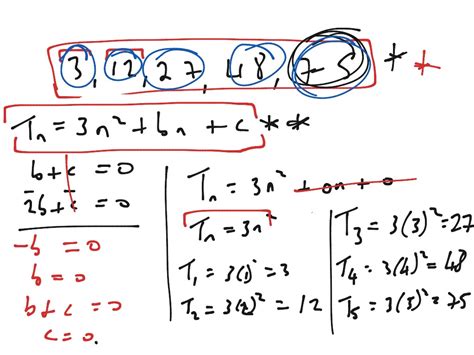 3, 12, 27, 48, 75 * *
Tn = 3n² + bn + c **
b + c = 0
2b + c = 0
-b = 0
b = 0
b + c = 0
c = 0.
Tn = 3n² + 0n + 0
Tn = 3n²
T1 = 3(1)² = 3
T2 = 3(2)² = 12
T3 = 3(3)² = 27
T4 = 3(4)² = 48
T5 = 3(5)² = 75